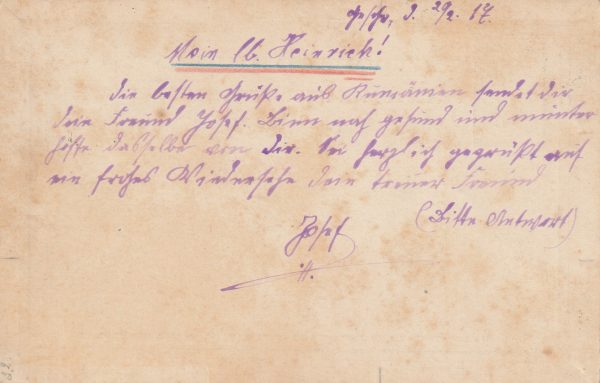 Geschr, d. 29/2. 17.
Mein lb. Heinrich!
die besten Grüße aus Rumänien sendet dir
dein Freund Josef. Binn noch gesund und munter
hoffe dasselbe von dir. Sei herzlich gegrüßt auf
ein frohes Wiedersehe dein treuer Freund
(Bitte Antwort)
Josef